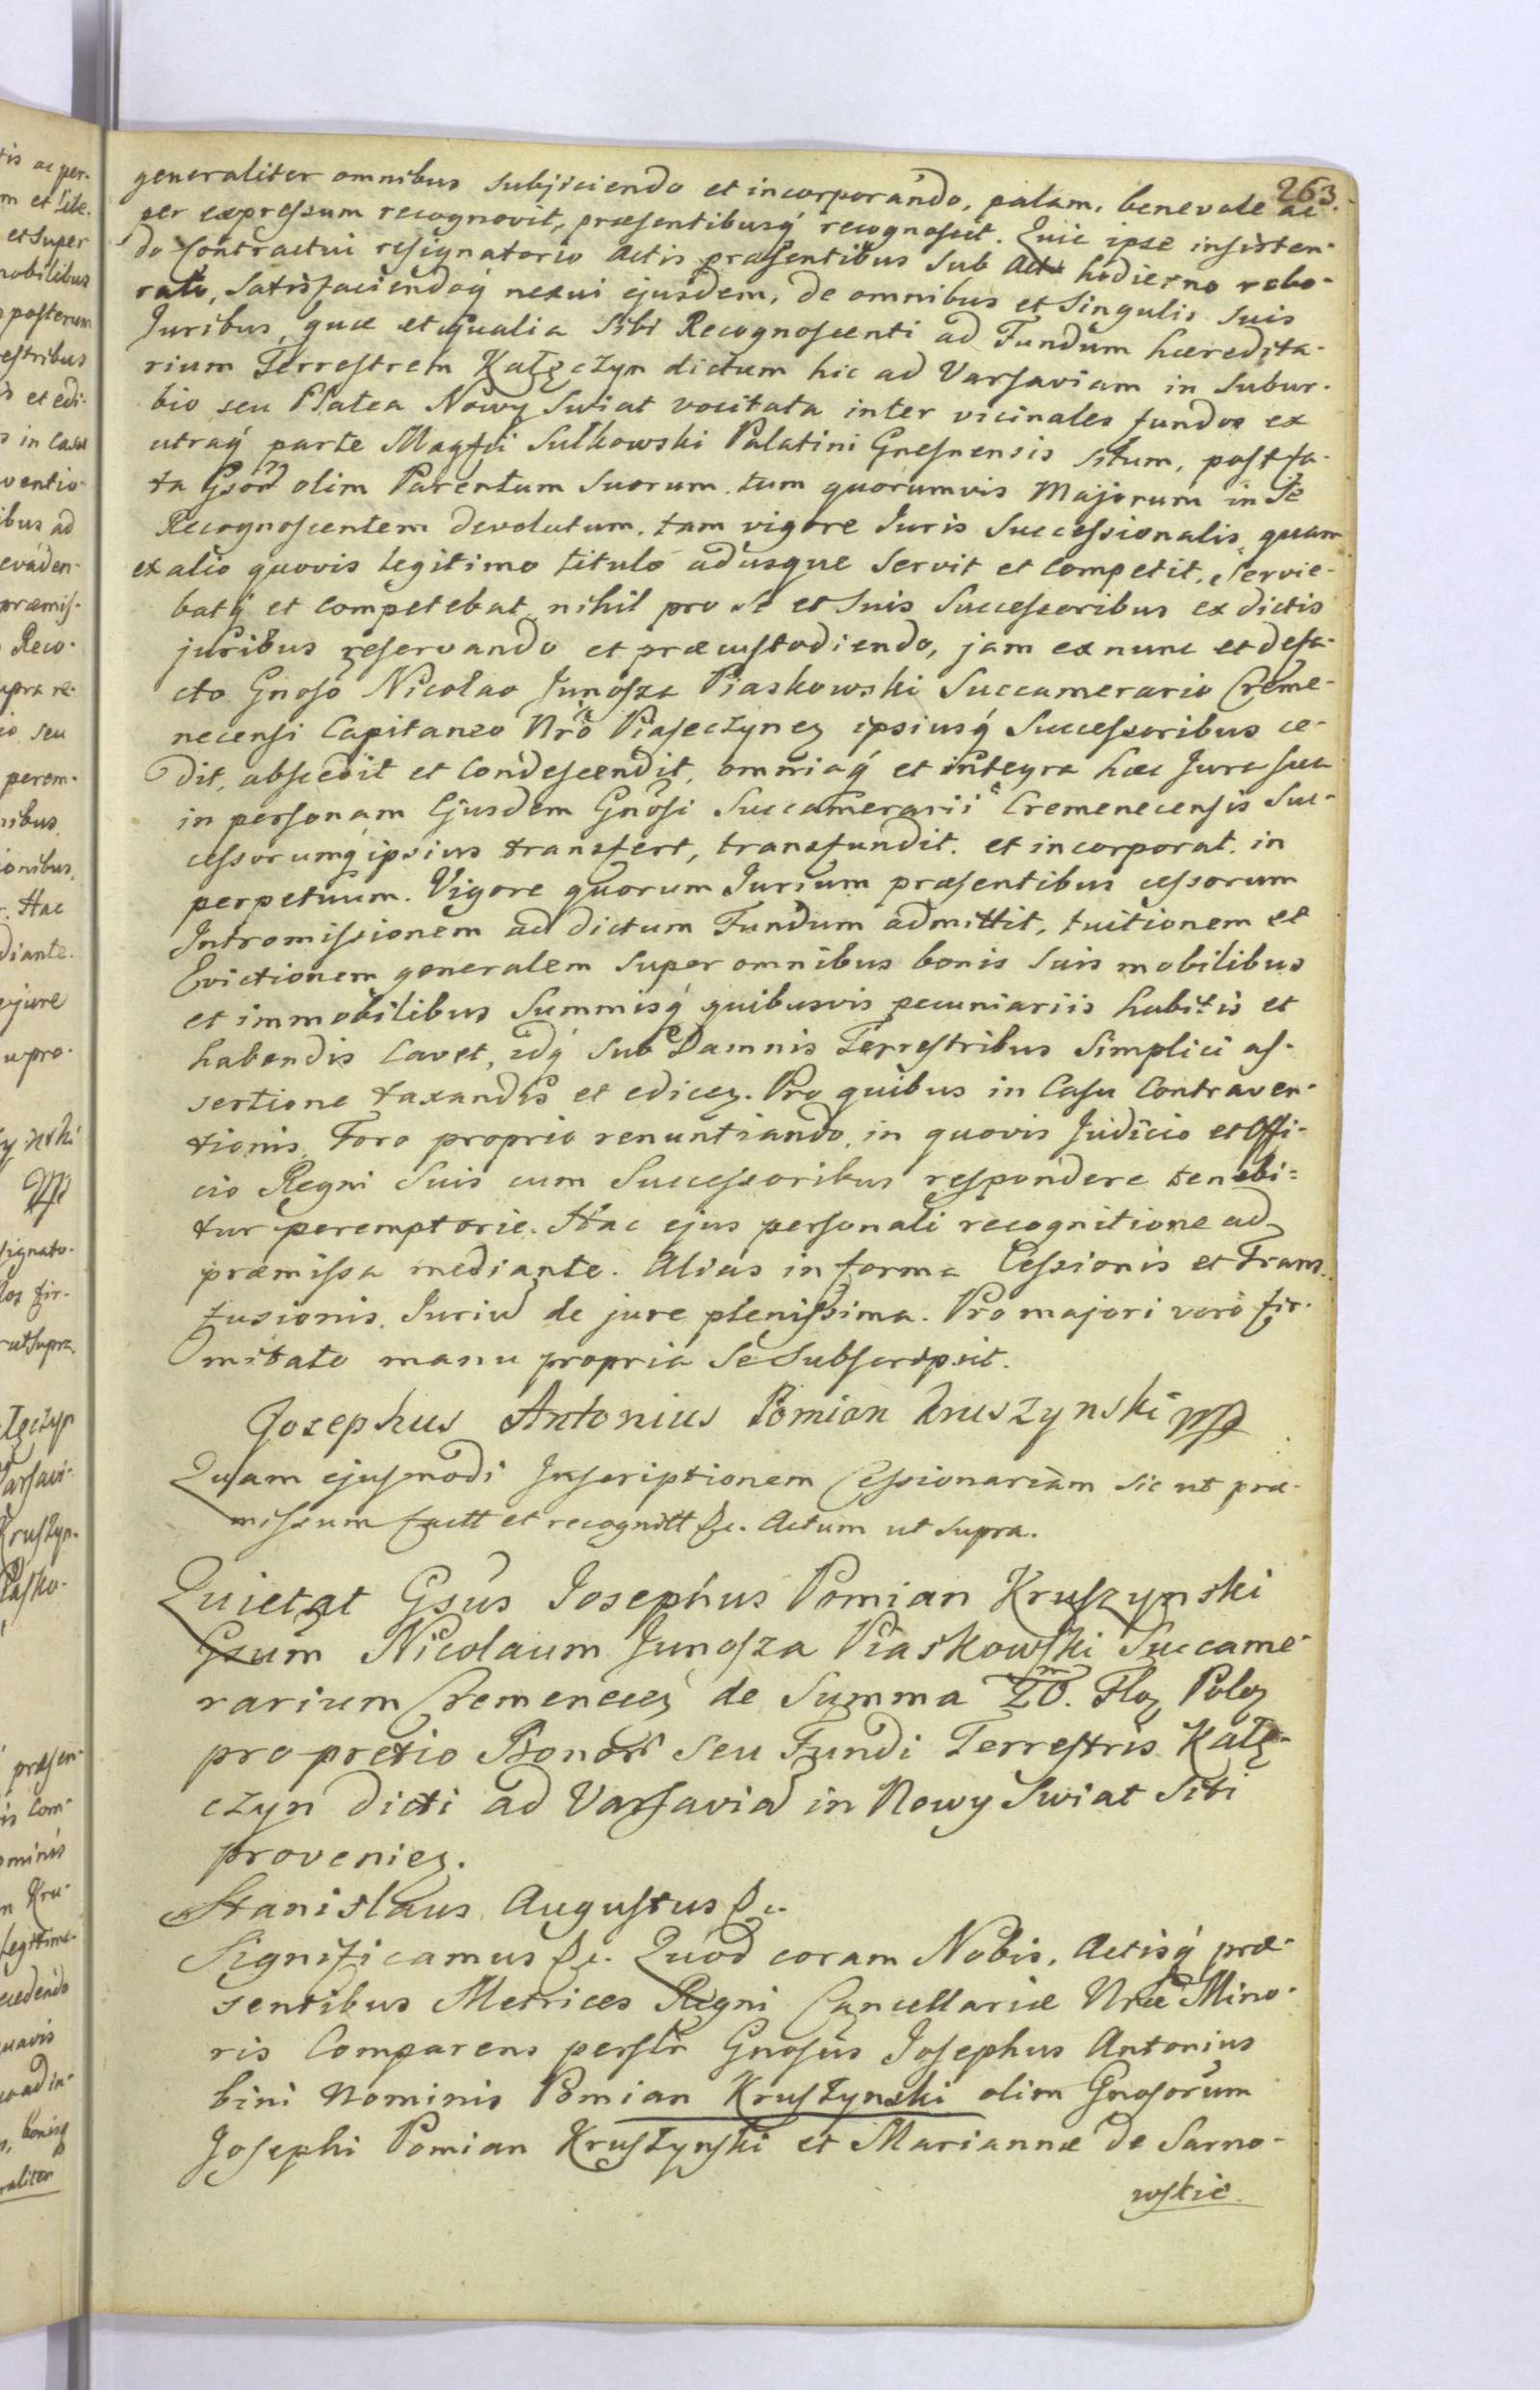 263.
generaliter omnibus subjiciendo et incorporando, palam, benevole ac
per expressum recognovit, præsentibusq́ recognoscit. Quic ipse insisten-
do Contractui resignatorio Actis præsentibus sub Actu hodierno robo-
rato, satisfaciendoq́ nexui ejusdem, de omnibus et singulis suis
Juribus, quæ et qualia sibi Recognoscenti ad Fundum hæredita-
rium Terrestrem Kałęczyn dictum hic ad Varsaviam in subur-
bio seu Platea Nowy Swiat vocitata inter vicinales fundos ex
utraq́ parte Magfci Sułkowski Palatini Gnesnensis situm, post fa-
ta Gsor̃ olim Parentum suorum, tum quorumvis Majorum in Se
Recognoscentem devolutum, tam vigore Juris Successionalis, quam
ex alio quovis legitimo titulo adusque servit et competit, servie-
batq́ et competebat, nihil pro se et suis Successoribus ex dictis
juribus reservando et præcustodiendo, jam ex nunc et de fa-
cto Gnoso Nicolao Junosza Piaskowski Succamerario Creme-
necensi Capitaneo Nrõ Piaseczynen ipsiusq́ Successoribus ce-
dit, abscedit et condescendit, omniaq́ et integra hæc Jura sua
in personam Ejusdem Gnõsi Succamerarii Cremenecensis Suc-
cessorumq́ ipsius transfert, transfundit et incorporat in
perpetuum. Vigore quorum Jurium præsentibus cessorum
Intromissionem ad dictum Fundum admittit, tuitionem et
Evictionem generalem super omnibus bonis suis mobilibus
et immobilibus Summisq́ quibusvis pecuniariis habitis et
habendis Cavet, idq́ sub Damnis Terrestribus Simplici as-
sertione taxandis et edicen. Pro quibus in Casu Contraven-
tionis, Foro proprio renuntiando, in quovis Judicio et Offi-
cio Regni suis cum Successoribus respondere tenebi=
tur peremptorie. Hac ejus personali recognitione ad
præmissa mediante. Alias in forma Cessionis et Trans-
fusionis Juriũ de jure plenissima. Pro majori verò fir-
mitate manu propria Se Subscripsit.
Josephus Antonius Pomian Kruszynski mp
Quam ejusmodi Inscriptionem Cessionariam sic ut præ-
missum factt et recognitt &c. Actum ut supra.
Quietat Gsũs Josephus Pomian Kruszynski
Gsum Nicolaum Junosza Piaskowski Succame-
rarium Cremenecen de Summa 20.m Flor Polon
pro pretio Bonor̃ seu Fundi Terrestris Kałę-
czyn dicti ad Varsaviã in Nowy Swiat Sibi
provenien.
Stanislaus Augustus &c.
Significamus &c. Quod coram Nobis, Actisq́ præ-
sentibus Metrices Regni Cancellariæ Nræ Mino-
ris Comparens persłr Gnosus Josephus Antonius
bini Nominis Pomian Kruszynski olim Gnosorum
Josephi Pomian Kruszynski et Mariannæ de Sarno-
wskie